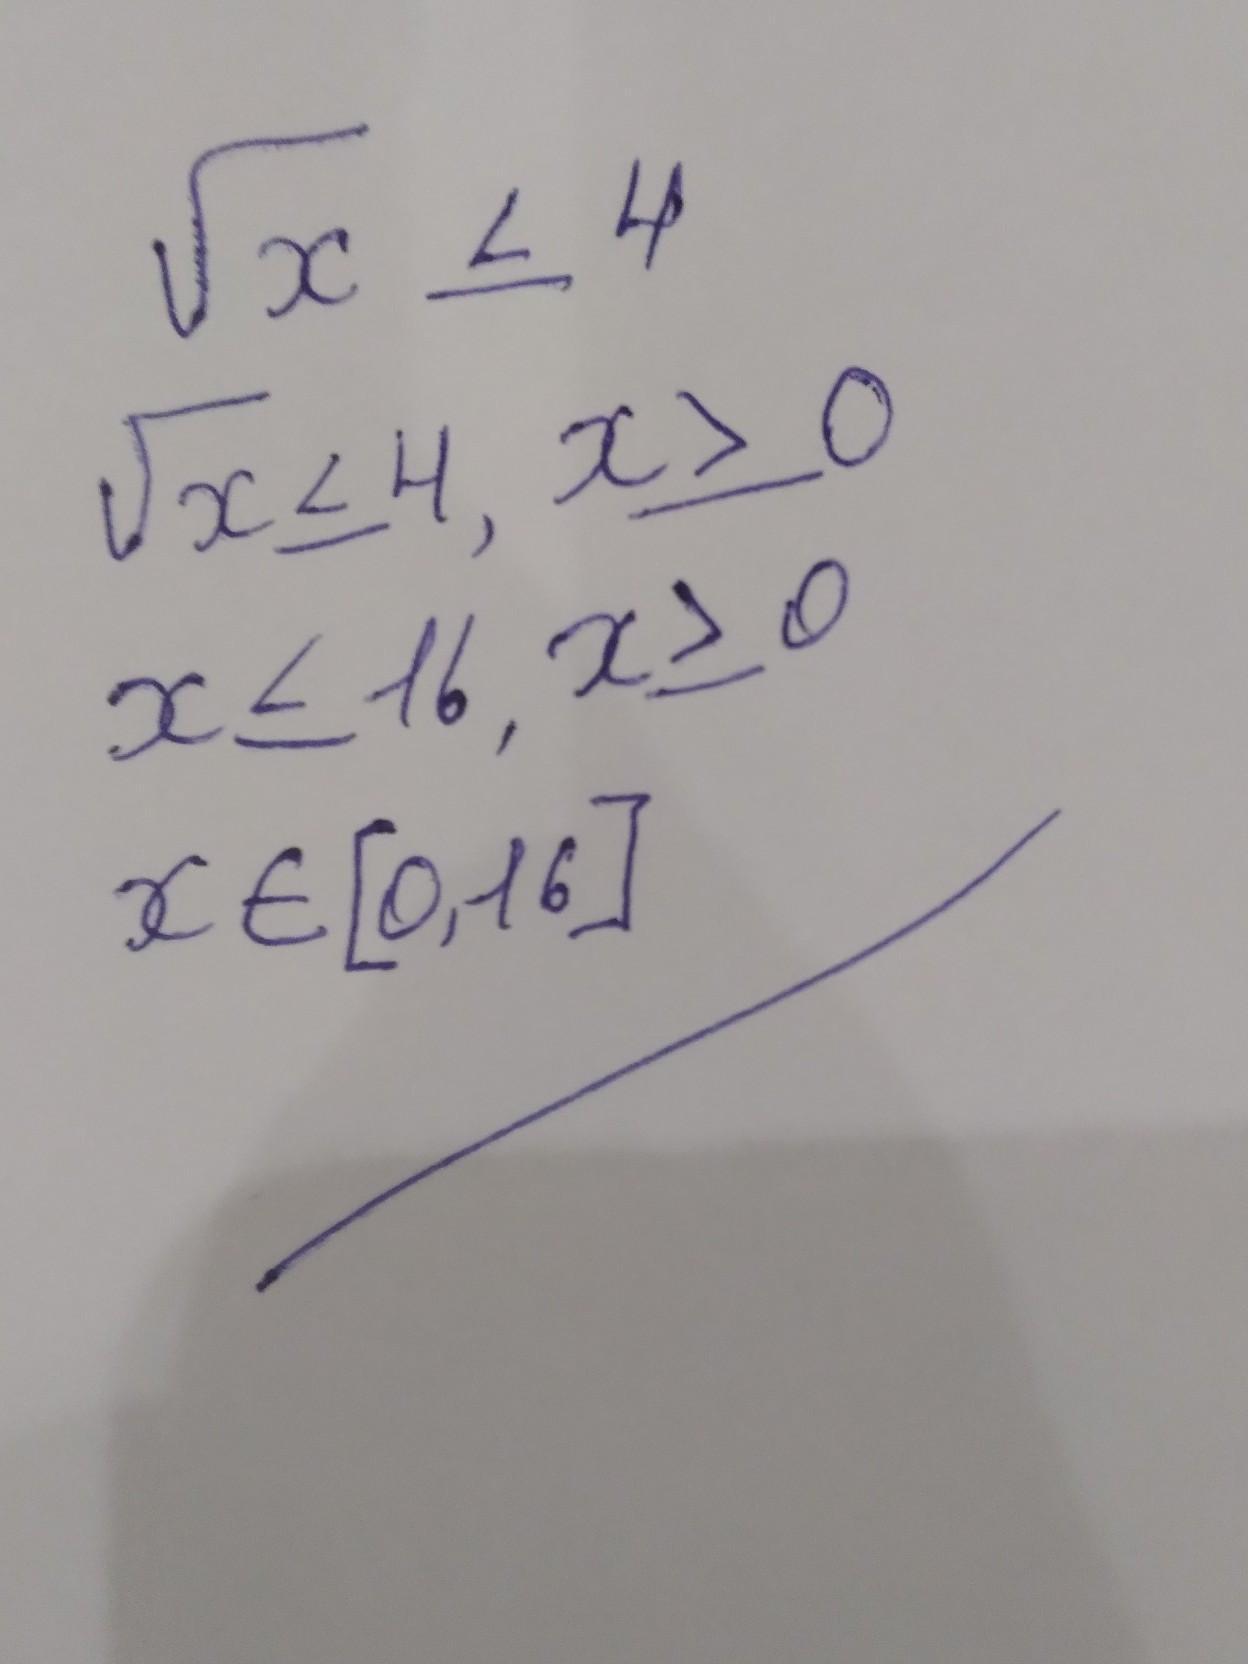 √x ≤ 4
√x ≤ 4, x ≥ 0
x ≤ 16, x ≥ 0
x ∈ [0,16]